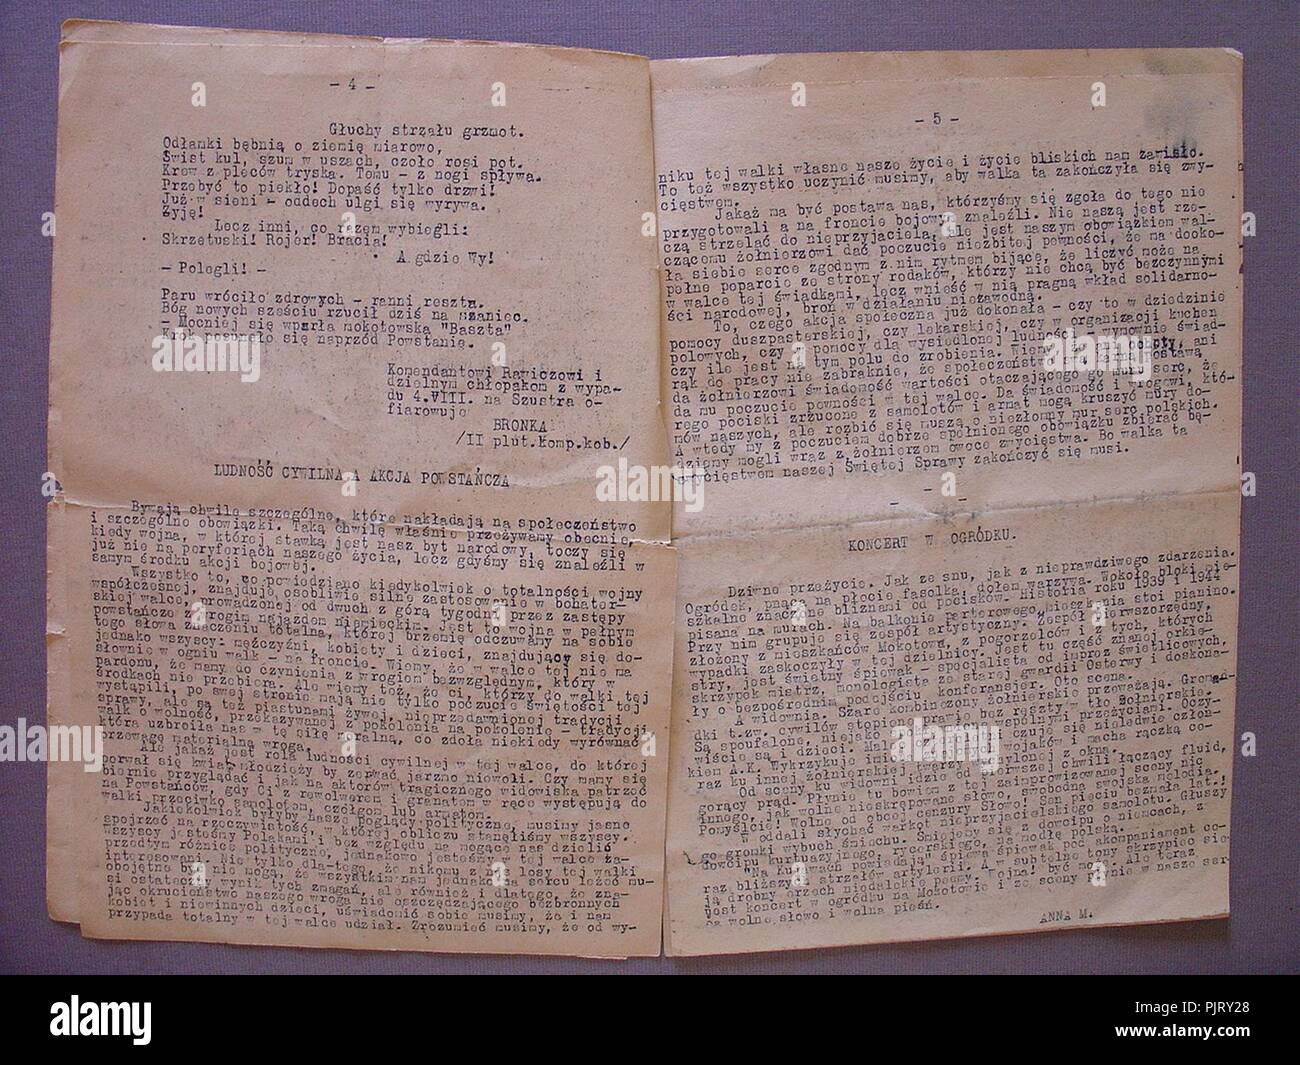 - 4 -
Głuchy strzału grzmot.
Odłamki bębnią o ziemię miarowo,
Świst kul, szum w uszach, czoło rosi pot.
Krew z pleców tryska. Tomu - z nogi spływa.
Przebyć to piekło! Dopaść tylko drzwi!
Już w sieni - oddech ulgi się wyrywa.
Żyję!
Lecz inni, co razem wybiegli:
Skrzetuski! Rojer! Bracia!
A gdzie Wy!
- Polegli! -
Paru wróciło zdrowych - ranni reszta.
Bóg nowych sześciu rzucił dziś na szaniec.
- Mocniej się wparła mokotowska "Baszta"
Krok posunęło się naprzód Powstanie.
Komendantowi Rawiczowi i
dzielnym chłopakom z wypa-
du 4.VIII. na Szustra o-
fiarowuje
BRONKA
/II plut.komp.kob./
LUDNOŚĆ CYWILNA A AKCJA POWSTAŃCZA
Bywają chwile szczególne, które nakładają na społeczeństwo
i szczególne obowiązki. Taką chwilę właśnie przeżywamy obecnie,
kiedy wojna, w której stawką jest nasz byt narodowy, toczy się
już nie na peryferiach naszego życia, lecz gdyśmy się znaleźli w
samym środku akcji bojowej.
Wszystko to, co powiedziano kiedykolwiek o totalności wojny
współczesnej, znajduje osobliwie silne zastosowanie w bohater-
skiej walce, prowadzonej od dwuch z górą tygodni przez zastępy
powstańcze z wrogim najazdem niemieckim. Jest to wojna w pełnym
tego słowa znaczeniu totalna, której brzemię odczuwamy na sobie
jednako wszyscy: mężczyźni, kobiety i dzieci, znajdujący się do-
słownie w ogniu walk - na froncie. Wiemy, że w walce tej nie ma
pardonu, że mamy do czynienia z wrogiem bezwzględnym, który w
środkach nie przebiera. Ale wiemy też, że ci, którzy do walki tej
wystąpili, po swej stronie mają nie tylko poczucie świętości tej
sprawy, ale są też piastunami żywej, nieprzedawnionej tradycji
walk o wolność, przekazywanej z pokolenia na pokolenie - tradycji,
która uzbroiła nas w tę siłę moralną, co zdoła niekiedy wyrównać
przewagę materialną wroga.
Ale jakaż jest rola ludności cywilnej w tej walce, do której
porwał się kwiat młodzieży by zerwać jarzmo niewoli. Czy mamy się
biernie przyglądać i jak na aktorów tragicznego widowiska patrzeć
na Powstańców, gdy Ci z rewolwerem i granatem w ręce występują do
walki przeciwko samolotom, czołgom lub armatom.
Jakiekolwiek byłyby nasze poglądy polityczne, musimy jasno
spojrzeć na rzeczywistość, w której obliczu stanęliśmy wszyscy.
Wszyscy jesteśmy Polakami i bez względu na mogące nas dzielić
przedtym różnice polityczne, jednakowo jesteśmy w tej walce za-
interesowani. Nie tylko dlatego, że nikomu z nas losy tej walki
obojętne być nie mogą, że wszystkim nam jednako na sercu leżeć mu-
si ostateczny wynik tych zmagań, ale również i dlatego, że zna-
jąc okrucieństwo naszego wroga nie oszczędzającego bezbronnych
kobiet i niewinnych dzieci, uświadomić sobie musimy, że i nam
przypada totalny w tej walce udział. Zrozumieć musimy, że od wy-
- 5 -
niku tej walki własne nasze życie i życie bliskich nam zawisło.
To też wszystko uczynić musimy, aby walka ta zakończyła się zwy-
cięstwem.
Jakaż ma być postawa nas, którzyśmy się zgoła do tego nie
przygotowali a na froncie bojowym znaleźli. Nie naszą jest rze-
czą strzelać do nieprzyjaciela, ale jest naszym obowiązkiem wal-
czącemu żołnierzowi dać poczucie niezbitej pewności, że ma dooko-
ła siebie serce zgodnym z nim rytmem bijące, że liczyć może na
pełne poparcie ze strony rodaków, którzy nie chcą być bezczynnymi
w walce tej świadkami, lecz wnieść w nią pragną wkład solidarno-
ści narodowej, broń w działaniu niezawodną.
To, czego akcja społeczna już dokonała - czy to w dziedzinie
pomocy duszpasterskiej, czy lekarskiej, czy w organizacji kuchen
polowych, czy w pomocy dla wysiedlonej ludności - wymownie świad-
czy ile jest na tym polu do zrobienia. Wiemy, że ni ochoty, ani
rąk do pracy nie zabraknie, że społeczeństwo swą karną postawą
da żołnierzowi świadomość wartości otaczającego go muru serc, że
da mu poczucie pewności w tej walce. Da świadomość i wrogowi, któ-
rego pociski zrzucone z samolotów i armat mogą kruszyć mury do-
mów naszych, ale rozbić się muszą o niezłomny mur serc polskich.
A wtedy my z poczuciem dobrze spełnionego obowiązku zbierać bę-
dziemy mogli wraz z żołnierzem owoce zwycięstwa. Bo walka ta
zwycięstwem naszej Świętej Sprawy zakończyć się musi.
- - -
KONCERT W OGRÓDKU.
Dziwne przeżycie. Jak ze snu, jak z nieprawdziwego zdarzenia.
Ogródek, pnąca na płocie fasolka, dołem warzywa. Wokoło bloki mie-
szkalne znaczne bliznami od pocisków. Historia roku 1939 i 1944
pisana na murach. Na balkonie parterowego mieszkania stoi pianino.
Przy nim grupuje się zespół artystyczny. Zespół pierwszorzędny,
złożony z mieszkańców Mokotowa, z pogorzelców i z tych, których
wypadki zaskoczyły w tej dzielnicy. Jest tu część znanej orkie-
stry, jest świetny śpiewak - specjalista od imprez świetlicowych,
skrzypek mistrz, monologista ze starej gwardii Osterwy i doskona-
ły o bezpośrednim podejściu konferansjer. Oto scena.
A widownia. Szare kombinezony żołnierskie przeważają. Groman-
dki t.zw. cywilów stopione prawie bez reszty w tło żołnierskie.
Są spoufalone, niejako pokrewnione wspólnymi przeżyciami. Oczy-
wiście są i dzieci. Mały chłopczyna czuje się nieledwie człon-
kiem A.K. Wykrzykuje imiona znajomych wojaków i macha rączką co-
raz ku innej żołnierskiej twarzy, wychylonej z okna.
Od sceny ku widowni idzie od pierwszej chwili łączący fluid,
gorący prąd. Płynie tu bowiem z tej zaimprowizowanej sceny nic
innego, jak wolne nieskrępowane słowo, swobodna swojska melodia.
Pomyślcie! Wolne od obcej cenzury Słowo! Sen pięciu bezmała lat.!
W oddali słychać warkot nieprzyjacielskiego samolotu. Głuszy
go gromki wybuch śmiechu. Śmiejemy się z dowcipu o niemcach, z
dowcipu kurtuazyjnego, rycerskiego, na modłę polską.
"Na Kujawach powiadają" śpiewa śpiewak pod akompaniament co-
raz bliższych strzałów artylerii. A w subtelne tony skrzypiec sie-
ją drobny orzech niedalekie peemy. Wojna! być może. Ale teraz
jest koncert w ogródku na Mokotowie i ze sceny płynie w nasze ser-
ca wolne słowo i wolna pieśń.
ANNA M.
alamy
www.alamy.com
Image ID: PJRY28